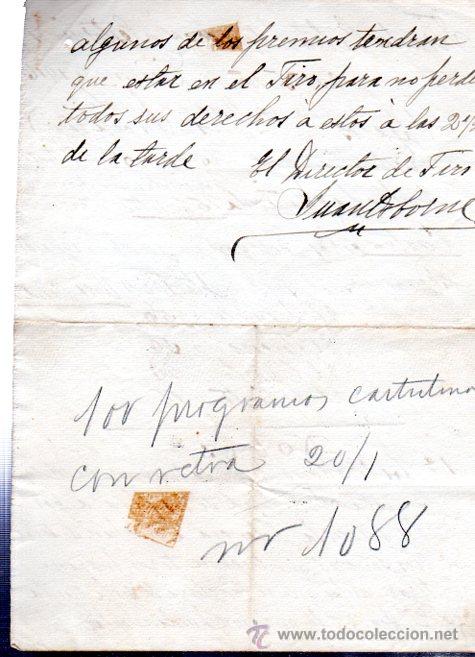 algunos de los premios tendran
que estar en el Tiro, para no perd
todos sus derechos à estos à las 2½
de la tarde El Director de Tiro
Juan Osborne
100 programas cartulina
con 20/1
nº 1088
tc www.todocoleccion.net